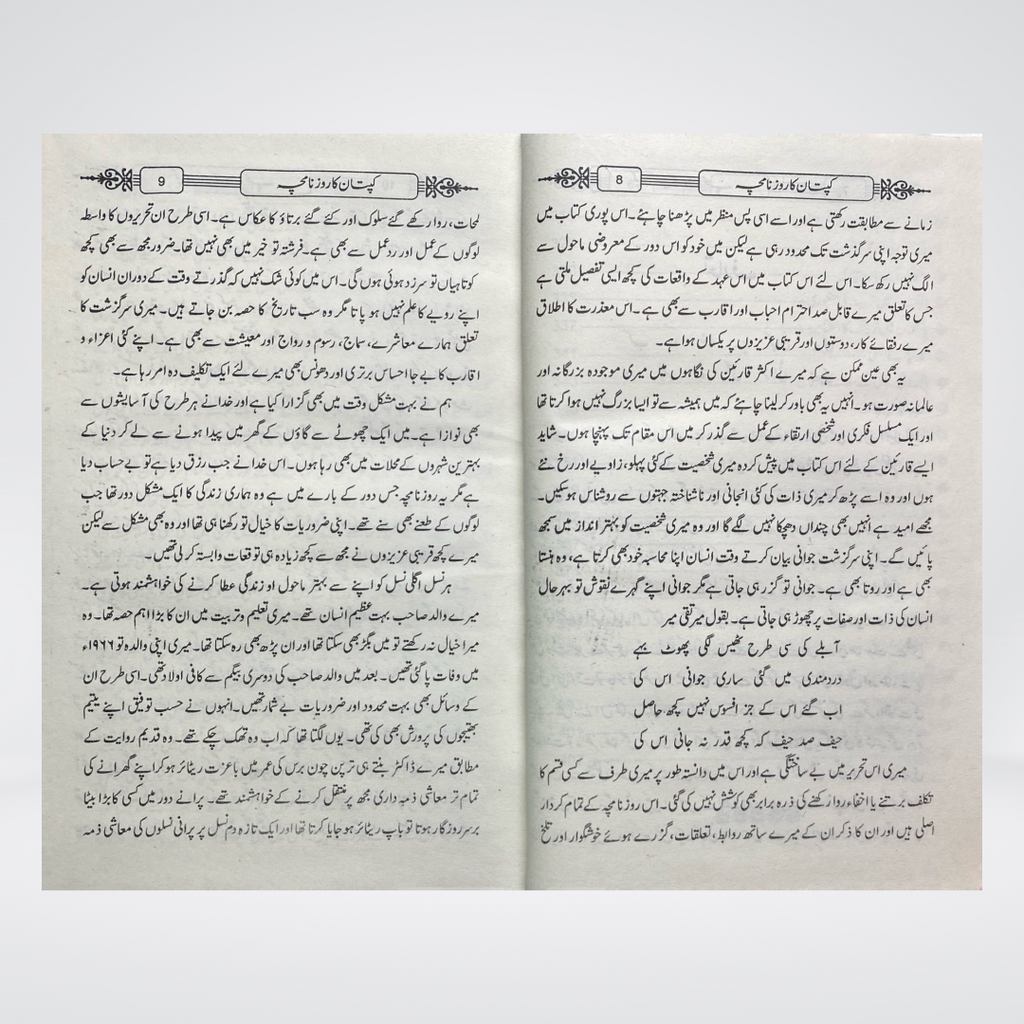 کپتان کا روزنامچہ
8
زمانے سے مطابقت رکھتی ہے اور اسے اسی پس منظر میں پڑھنا چاہئے۔ اس پوری کتاب میں
میری توجہ اپنی سرگذشت تک محدود رہی ہے لیکن میں خود کو اس دور کے معروضی ماحول سے
الگ نہیں رکھ سکا۔ اس لئے اس کتاب میں اس عہد کے واقعات کی کچھ ایسی تفصیل ملتی ہے
جس کا تعلق میرے قابل صد احترام احباب اور اقارب سے بھی ہے۔ اس معذرت کا اطلاق
میرے رفقائے کار، دوستوں اور قریبی عزیزوں پر یکساں ہوا ہے۔
یہ بھی عین ممکن ہے کہ میرے اکثر قارئین کی نگاہوں میں میری موجودہ بزرگانہ اور
عالمانہ صورت ہو۔ انہیں یہ بھی باور کر لینا چاہئے کہ میں ہمیشہ سے تو ایسا بزرگ نہیں ہوا کرتا تھا
اور ایک مسلسل فکری اور شخصی ارتقاء کے عمل سے گذر کر میں اس مقام تک پہنچا ہوں۔ شاید
ایسے قارئین کے لئے اس کتاب میں پیش کردہ میری شخصیت کے کئی پہلو، زاویے اور رخ نئے
ہوں اور وہ اسے پڑھ کر میری ذات کی کئی انجانی اور ناشناختہ جہتوں سے روشناس ہو سکیں۔
مجھے امید ہے انہیں بھی چنداں دھچکا نہیں لگے گا اور وہ میری شخصیت کو بہتر انداز میں سمجھ
پائیں گے۔ اپنی سرگزشت جوانی بیان کرتے وقت انسان اپنا محاسبہ خود بھی کرتا ہے، وہ ہنستا
بھی ہے اور روتا بھی ہے۔ جوانی تو گزر ہی جاتی ہے مگر جوانی اپنے گہرے نقوش تو بہرحال
انسان کی ذات اور صفات پر چھوڑ ہی جاتی ہے۔ بقول میر تقی میر
آبلے کی سی طرح ٹھیس لگی پھوٹ بہے
دردمندی میں گئی ساری جوانی اس کی
اب گئے اس کے جز افسوس نہیں کچھ حاصل
حیف صد حیف کہ کچھ قدر نہ جانی اس کی
میری اس تحریر میں بے ساختگی ہے اور اس میں دانستہ طور پر میری طرف سے کسی قسم کا
تکلف برتنے یا اخفاء روا رکھنے کی ذرہ برابر بھی کوشش نہیں کی گئی۔ اس روزنامچہ کے تمام کردار
اصلی ہیں اور ان کا ذکر ان کے میرے ساتھ روابط، تعلقات، گزرے ہوئے خوشگوار اور تلخ
کپتان کا روزنامچہ
9
لمحات، روا رکھے گئے سلوک اور کئے گئے برتاؤ کا عکاس ہے۔ اسی طرح ان تحریروں کا واسطہ
لوگوں کے عمل اور ردعمل سے بھی ہے۔ فرشتہ تو خیر میں بھی نہیں تھا۔ ضرور مجھ سے بھی کچھ
کوتاہیاں تو سرزد ہوئی ہوں گی۔ اس میں کوئی شک نہیں کہ گذرتے وقت کے دوران انسان کو
اپنے رویے کا علم نہیں ہو پاتا مگر وہ سب تاریخ کا حصہ بن جاتے ہیں۔ میری سرگزشت کا
تعلق ہمارے معاشرے، سماج، رسوم و رواج اور معیشت سے بھی ہے۔ اپنے کئی اعزاء و
اقارب کا بے جا احساس برتری اور دھونس بھی میرے لئے ایک تکلیف دہ امر رہا ہے۔
ہم نے بہت مشکل وقت میں بھی گزارا کیا ہے اور خدا نے ہر طرح کی آسائشوں سے
بھی نوازا ہے۔ میں ایک چھوٹے سے گاؤں کے گھر میں پیدا ہونے سے لے کر دنیا کے
بہترین شہروں کے محلات میں بھی رہا ہوں۔ اس خدا نے جب رزق دیا ہے تو بے حساب دیا
ہے مگر یہ روزنامچہ جس دور کے بارے میں ہے وہ ہماری زندگی کا ایک مشکل دور تھا جب
لوگوں کے طعنے بھی سنے تھے۔ اپنی ضروریات کا خیال تو رکھنا ہی تھا اور وہ بھی مشکل سے لیکن
میرے کچھ قریبی عزیزوں نے مجھ سے کچھ زیادہ ہی توقعات وابستہ کر لی تھیں۔
ہر نسل اگلی نسل کو اپنے سے بہتر ماحول او زندگی عطا کرنے کی خواہشمند ہوتی ہے۔
میرے والد صاحب بہت عظیم انسان تھے۔ میری تعلیم و تربیت میں ان کا بڑا اہم حصہ تھا۔ وہ
میرا خیال نہ رکھتے تو میں بگڑ بھی سکتا تھا اور ان پڑھ بھی رہ سکتا تھا۔ میری اپنی والدہ تو ۱۹۶۶ء
میں وفات پا گئی تھیں۔ بعد میں والد صاحب کی دوسری بیگم سے کافی اولاد تھی۔ اسی طرح ان
کے وسائل بھی بہت محدود اور ضروریات بے شمار تھیں۔ انہوں نے حسب توفیق اپنے یتیم
بھتیجوں کی پرورش بھی کی تھی۔ یوں لگتا تھا کہ اب وہ تھک چکے تھے۔ وہ قدیم روایت کے
مطابق میرے ڈاکٹر بنتے ہی ترپن چون برس کی عمر میں باعزت ریٹائر ہو کر اپنے گھرانے کی
تمام تر معاشی ذمہ داری مجھ پر منتقل کرنے کے خواہشمند تھے۔ پرانے دور میں کسی کا بڑا بیٹا
برسر روزگار ہوتا تو باپ ریٹائر ہو جایا کرتا تھا اور ایک تازہ دم نسل پر پرانی نسلوں کی معاشی ذمہ